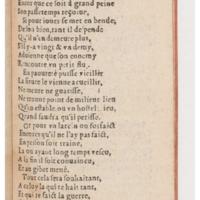 Encor que ce soit à grand peine
Son passetemps reçoiue,
Si pour iouer se met en bende,
De ses bien, tant il despende
Qu'il n'en demeure plus,
S'il y a vingt & vn demy,
Aduienne que son ennemy
Rencontre vn petit flu.
En paoureté puisse vieillir
La fleure le vienne acueillir,
Ne meure ne guarisse,
Ne treuue point de milieur lien
Qu'vn estable ou vn hostel lieu,
Quand faudra qu'il perisse.
Et pour vn larcin ou forfaict
Encores qu'il ne l'ay pas faict,
En prison soit traine,
La ou ayant long temps vescu,
A la fin il soit conuaincu,
Et au gibet mené.
Tout cela sera souhaitant,
A celuy la qui te hait tant,
Et qui te faict la guerre,